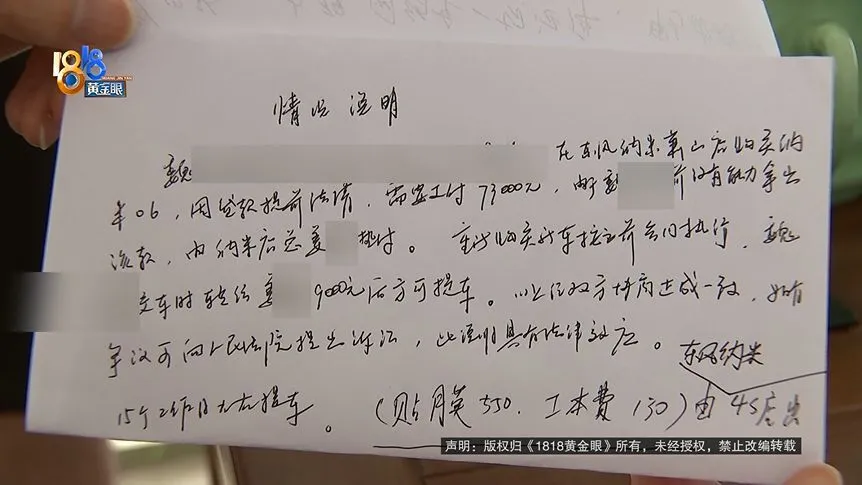 1818
HUANG JIN YAN
黄金眼
情况说明
魏 在东风纳米萧山店购买纳
米06，用贷款提前结清，需要支付73000元，由于魏 目前没有能力拿出
该款，由纳米店总姜 垫付。重新购买新车按之前合同执行，魏
交车时转给姜 9000元后方可提车。以上经双方协商达成一致，如有
争议可向人民法院提出诉讼，此说明具有法律效应。
东风纳米
15个工作日左右提车。（贴膜550.工本费130）由4S店出
声明：版权归《1818黄金眼》所有，未经授权，禁止改编转载